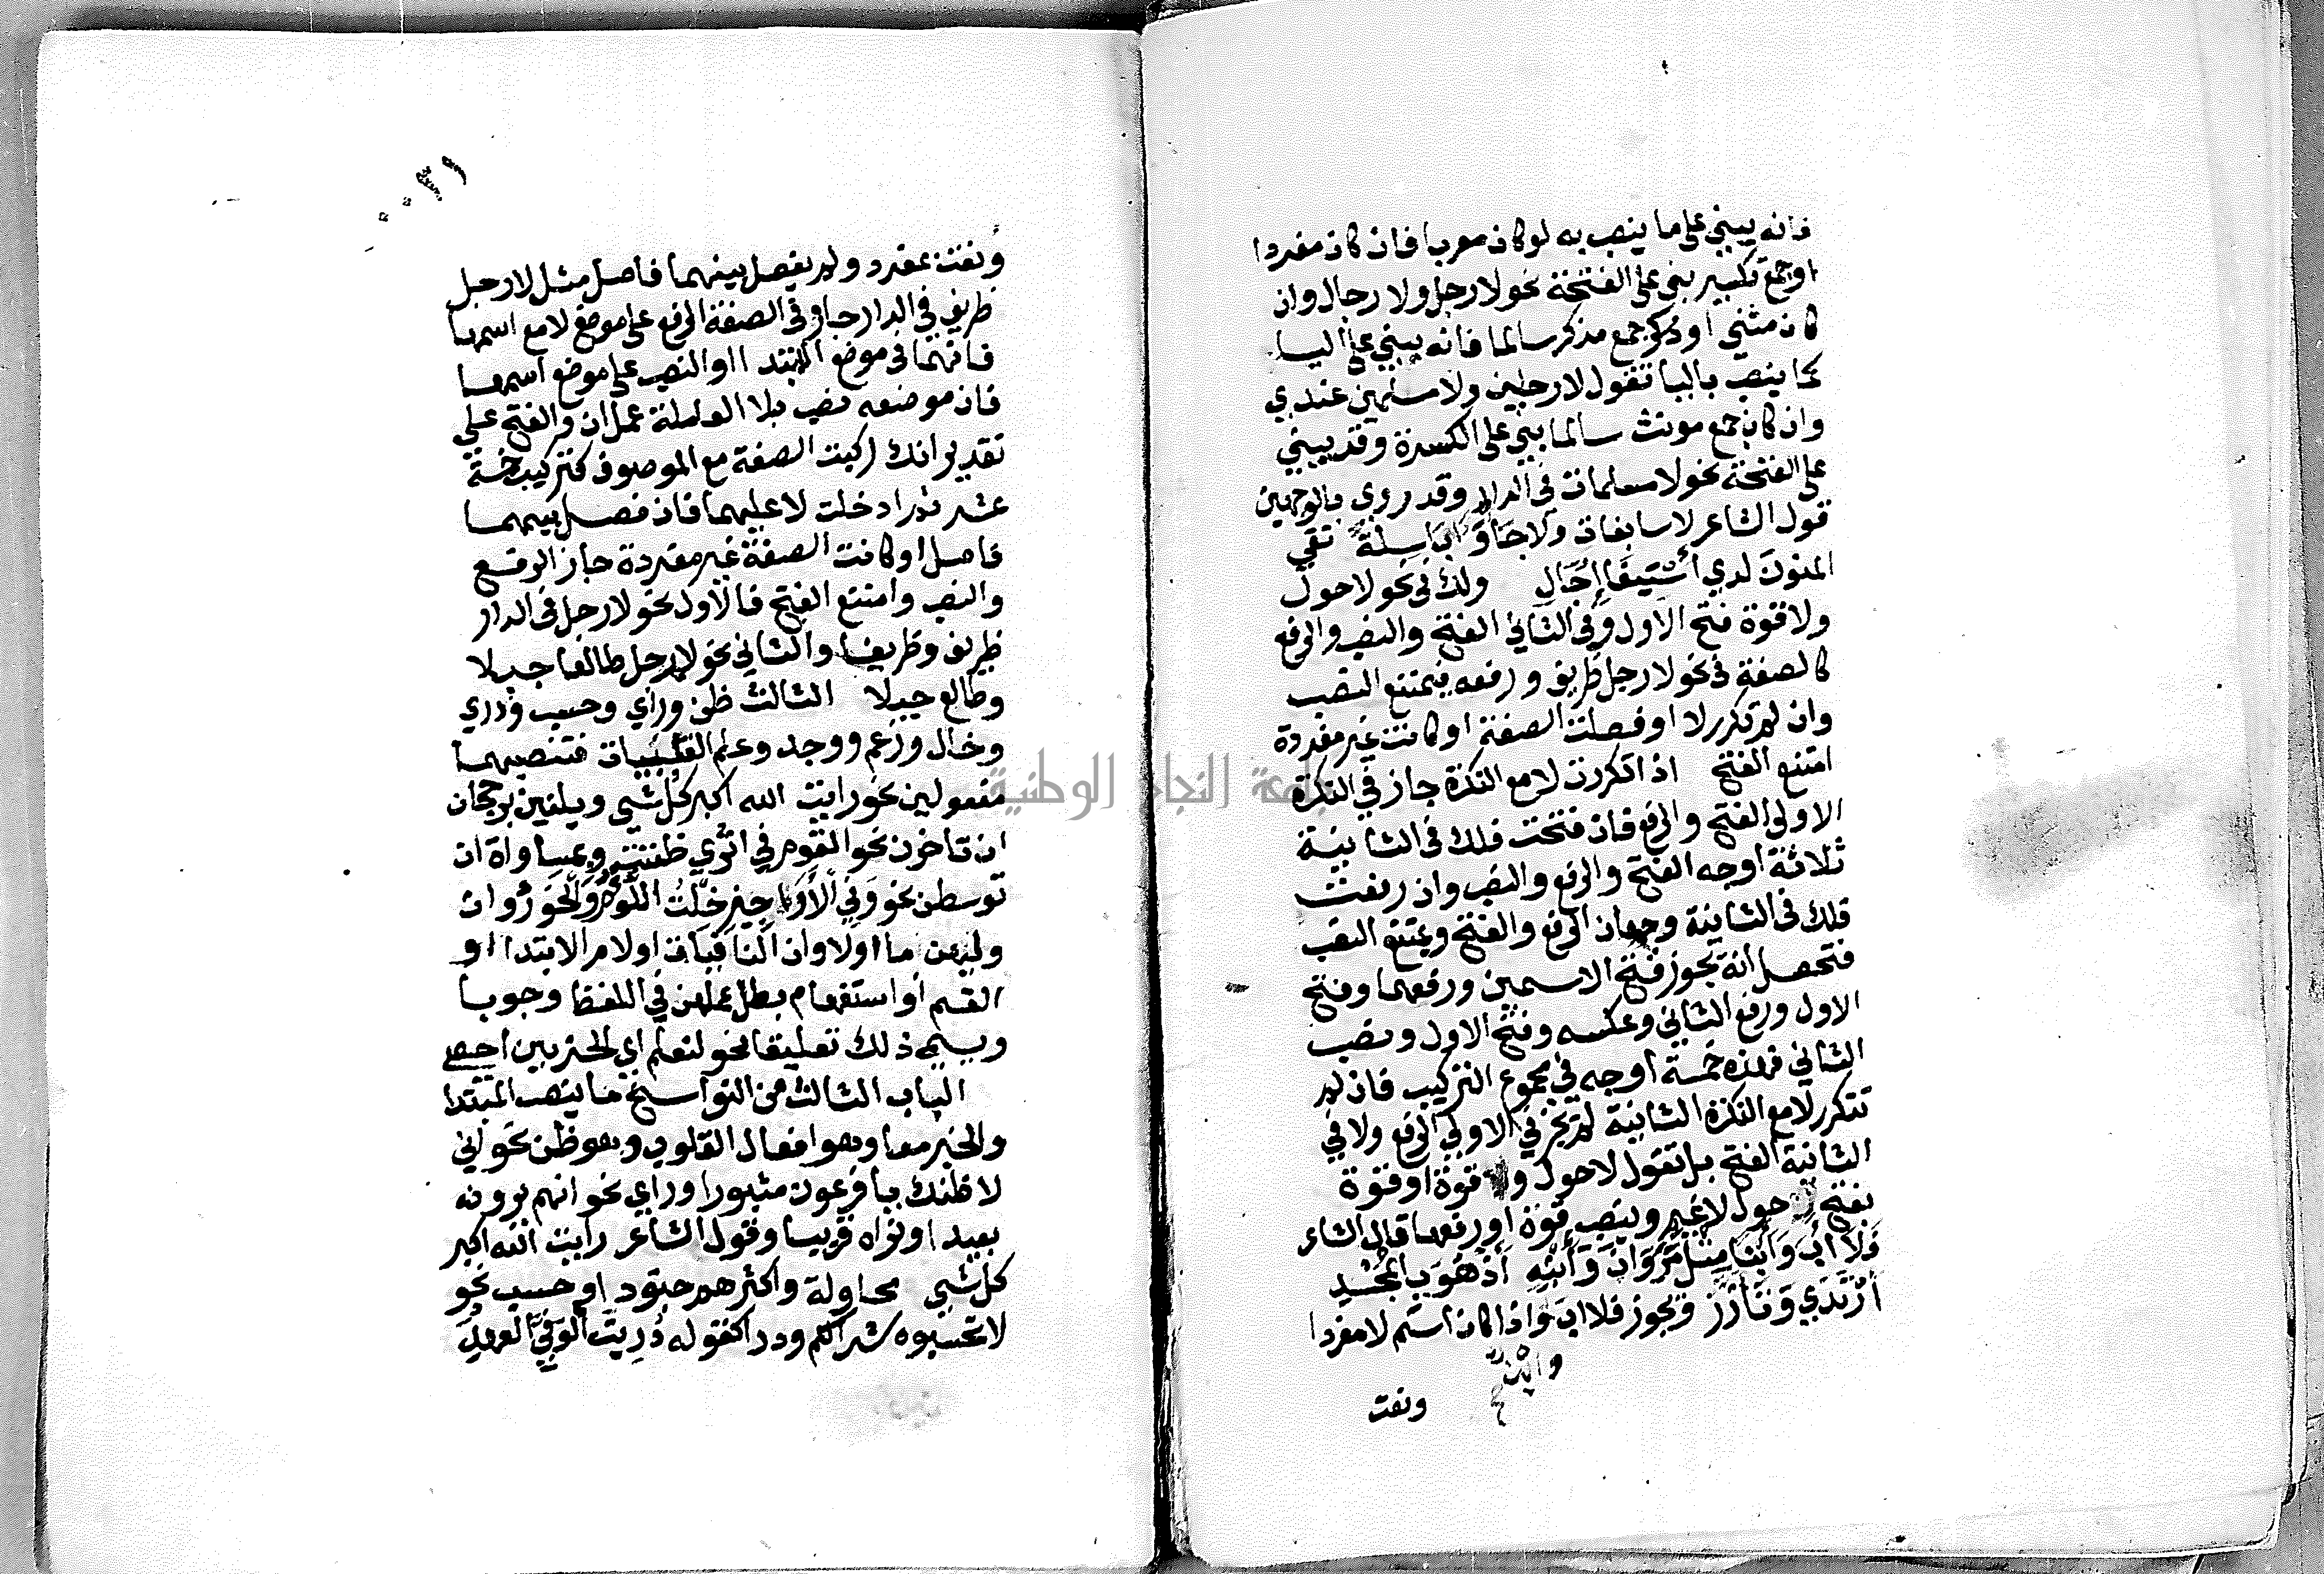 فانه يبني على ما ينصب به لو كان معربا فان كان مفردا
او جمع تكسير بني على الفتحة نحو لا رجل ولا رجال وان
كان مثني او جمع مذكر سالما فانه يبني على اليا
كما ينصب باليا تقول لا رجلين ولا مسلمين عندي
وان كان جمع مونث سالما بني على الكسرة وقد يبني
على الفتحة نحو لا مسلمات في الدار وقد روي بالوجهين
قول الشاعر لا سابغات ولا جَأْوَاءَ بَاسِلَةً تقي
المنونَ لدي اسْتِيفَاءِ اجَالِ ولك في نحو لا حول
ولا قوة فتح الاول وفي الثاني الفتح والنصب والرفع
كالصفة في نحو لا رجل ظريف ورفعه فيمتنع النصب
وان لم تكرر لا او فصلت الصفة او كانت غير مفردة
امتنع الفتح اذا تكررت لا مع النكرة جاز في النكرة
الاولي الفتح والرفع فان فتحت فلك في الثانية
ثلاثة اوجه الفتح والرفع والنصب وان رفعت
فلك في الثانية وجهان الرفع والفتح ويمتنع النصب
فتحصل انه يجوز فتح الاسمين ورفعهما وفتح
الاول ورفع الثاني وعكسه وفتح الاول ونصب
الثاني فهذه خمسة اوجه في مجموع التركيب فان لم
تتكرر لا مع النكرة الثانية لم يجز في الاولي الرفع ولا في
الثانية الفتح بل تقول لا حول وقوة او قوة
بفتح حول لا غير ونصب قوة او رفعها قال الشاعر
فَلَا ابَ وَابْنًا مِثْلَ مَرْوَانَ وَابْنِهِ اذْ هُوَ بِالمَجْدِ
ارْتَدَي وَتَأَزَّرَ ويجوز فلا اب وابن واذا كان اسم لا مفردا
ونعت
ونعت بمفرد ولم يفصل بينهما فاصل مثل لا رجل
ظريف في الدار جاز في الصفة الرفع على موضع لا مع اسمها
فانهما في موضع المبتدا او النصب على موضع اسمها
فان موضعه نصب بلا العاملة عمل ان والفتح علي
تقدير انك ركبت الصفة مع الموصوف كتركيب خمسة
عشر ثم ادخلت لا عليهما فان فصل بينهما
فاصل او كانت الصفة غير مفردة جاز الرفع
والنصب وامتنع الفتح فالاول نحو لا رجل في الدار
ظريف وظريفا والثاني نحو لا رجل طالعا جبلا
وطالع جبلا الثالث ظن وراي وحسب ودري
وخال وزعم ووجد وعلم القلبيات فتنصبهما
مفعولين نحو رايت الله اكبر كل شي ويلغين برجحان
ان تاخرن نحو القوم في اثري ظننت وبمساواة ان
توسطن نحو وَفي الْأَرَاجِيزِ خِلْتُ اللُّؤْمُ وَالْخَوَرُ وان
وليهن ما او لا وان النافيات او لام الابتدا او
القسم او استفهام بطل عملهن في اللفظ وجوبا
ويسمي ذلك تعليقا نحو لنعلم اي الحزبين احصي
الباب الثالث من النواسخ ما ينصب المبتدا
والخبر معا وهو افعال القلوب وهو ظن نحو اني
لاظنك يا فرعون مثبورا وراي نحو انهم يرونه
بعيدا ونراه قريبا وقول الشاعر رايت الله اكبر
كل شي محاولة واكثرهم جنودا وحسب نحو
لا تحسبوه شرا لكم ودرا كقوله دُرِيتَ الْوَفِيَّ العهدِ
جامعة النجاح الوطنية